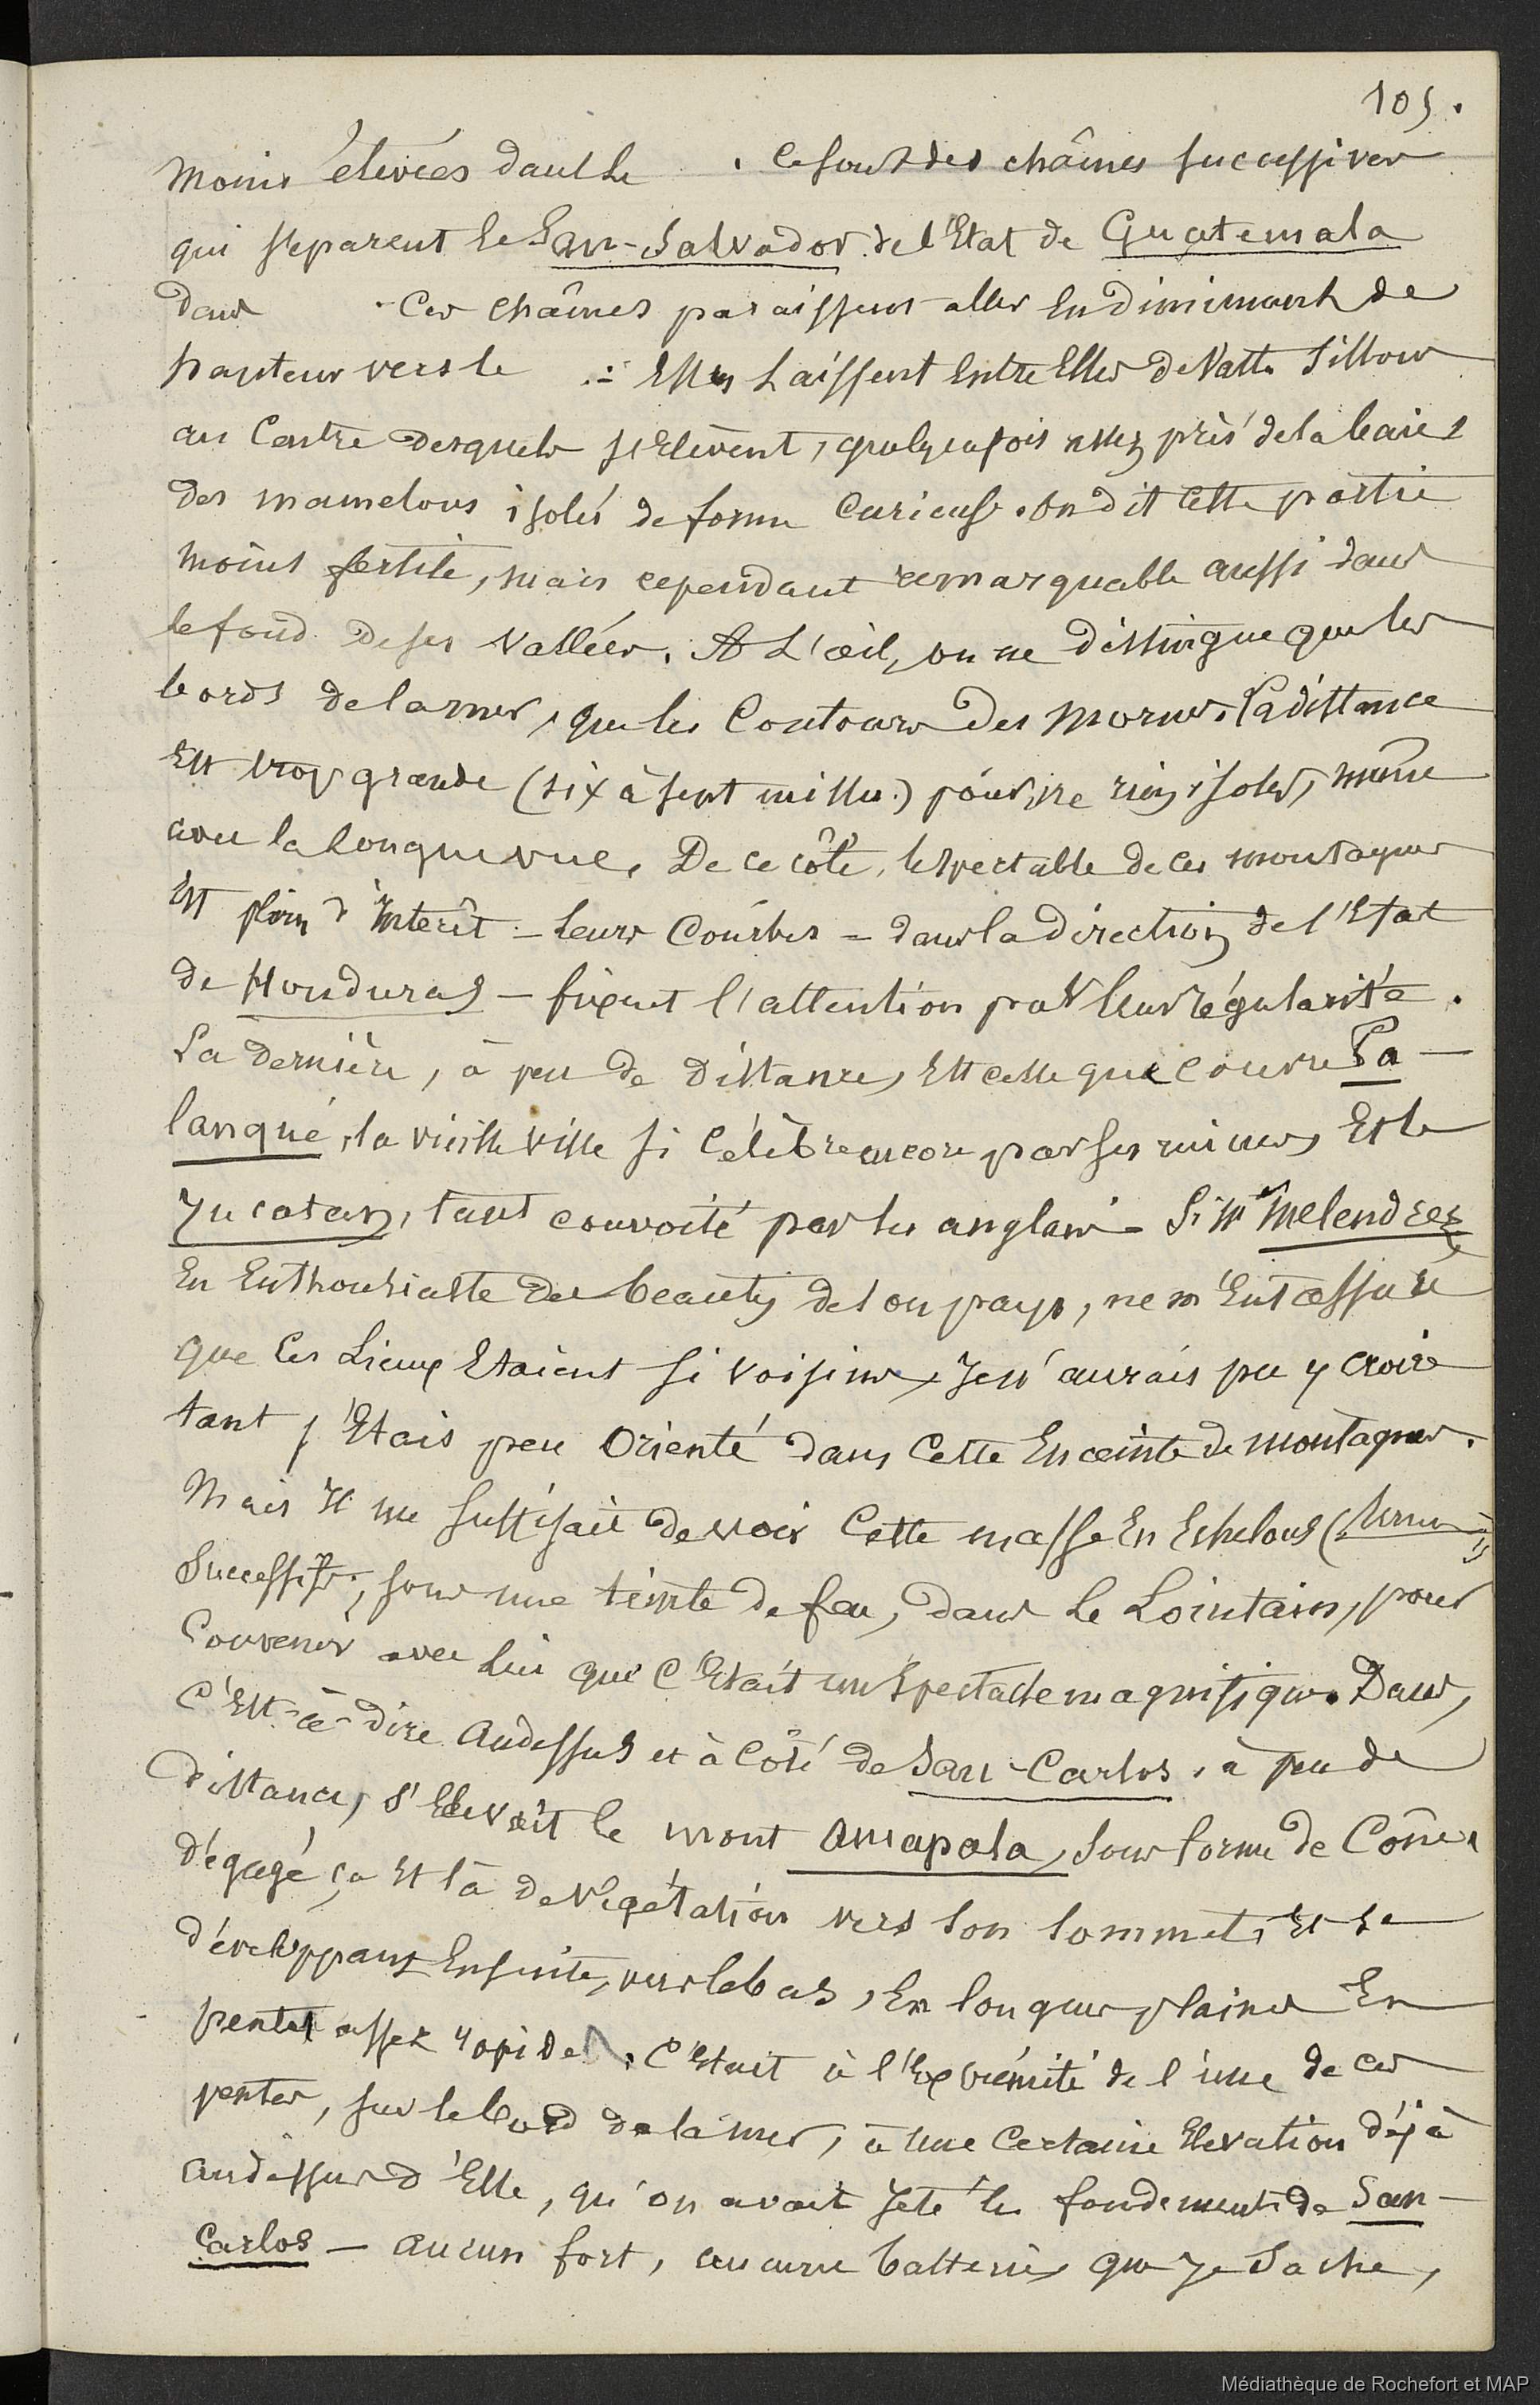 105.
moins élevées dans le . Ce sont des chaînes successives
qui séparent le San-Salvador de l'Etat de Guatemala
dans . Ces chaînes paraissent aller En diminuant de
hauteur vers le . : Elles Laissent Entre Elles de Vastes Sillons
au Centre desquels s'Elèvent, quelquefois assez près de la baie,
des mamelons isolés de forme Curieuse. On dit Cette partie
moins fertile, mais cependant remarquable aussi dans
le fond de ses Vallées. A L'œil, on ne distingue que les
bords de la mer, que les Contours des mornes. La distance
Est trop grande (six à sept milles) pour, ne rien isoler, même
avec la longue vue. De ce côté, le spectacle de ces montagnes
Est plein d'Intérêt - leurs Courbes - dans la direction de l'Etat
de Honduras - fixent l'attention par leur régularité.
La dernière, à peu de distance, Est celle que couvre Pa-
lanqué, la vieille ville si Célèbre encore par ses ruines, Et le
Yucatan, tant convoité par les anglais - Si Mr Melendrez,
En Enthousiaste des beautés de son pays, ne m'Eut assuré
que Ces Lieux Etaient si Voisins, Je n'aurais pu y croire
tant j'Etais peu Orienté dans Cette Enceinte de montagnes.
Mais Il me suffisait de voir Cette masse En Echelons (
Successifs, sous une teinte de feu, dans le Lointain, pour
Convenir avec Lui que C'Etait un Spectacle magnifique. Dans,
C'Est-à-dire Audessus et à Côté de San-Carlos, à peu de
distance, s'Elevait le mont Amapala, sous forme de Cône,
dégagé ça Et là de Végétation vers son sommet, Et se
développant Ensuite, vers le bas, En longues plaines En
pentes assez rapides. C'Etait à l'Extrémité de l'une de ces
pentes, sur le bord de la mer, à une Certaine Elevation déjà
audessus d'Elle, qu'on avait Jeté les fondements de San-
Carlos - aucun fort, aucune batterie, que Je Sache,
Médiathèque de Rochefort et MAP